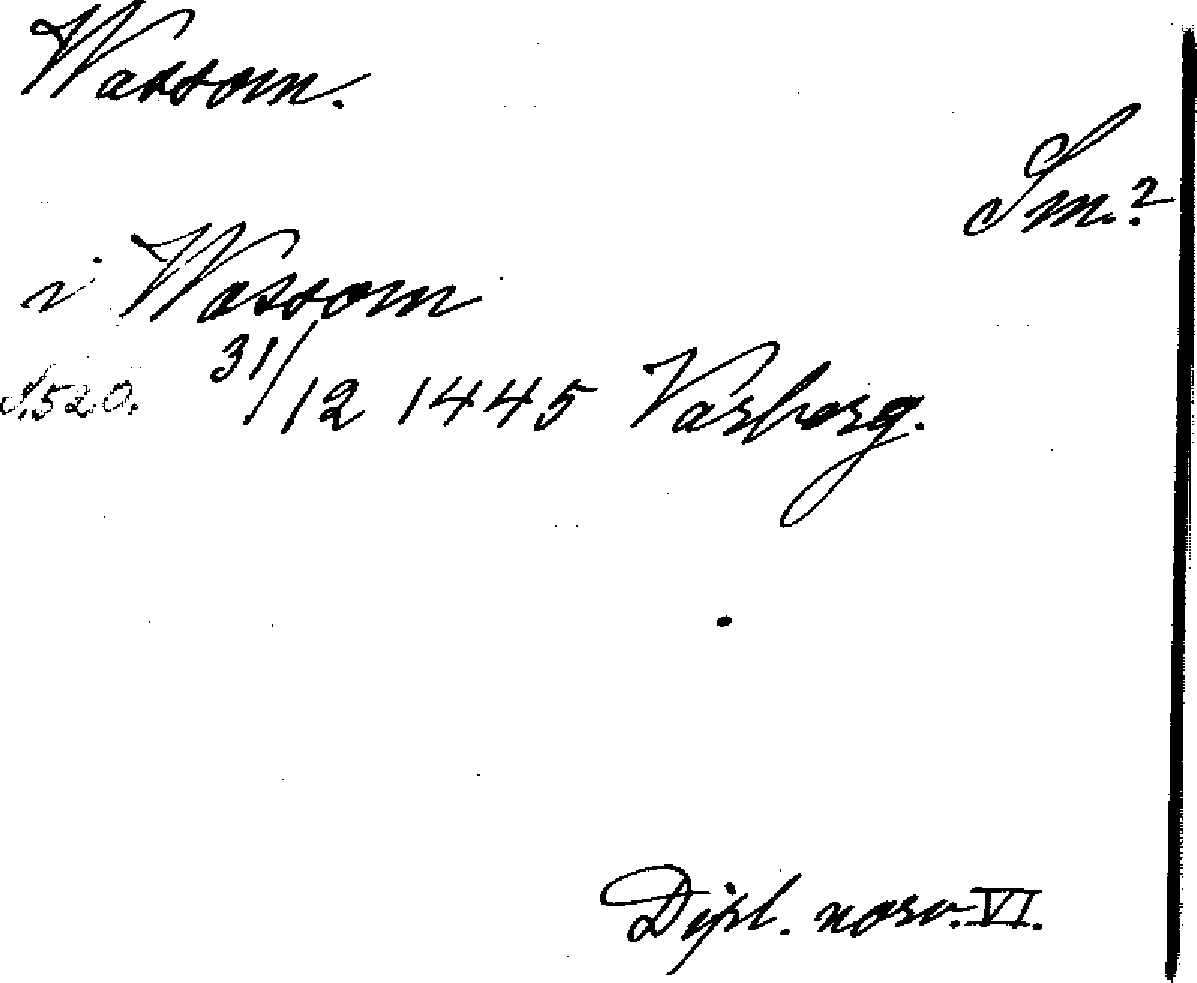 Wassom.
Sm.?
i Wassom
S.520. 31/12 1445 Varberg.
Dipl. norv. VI.